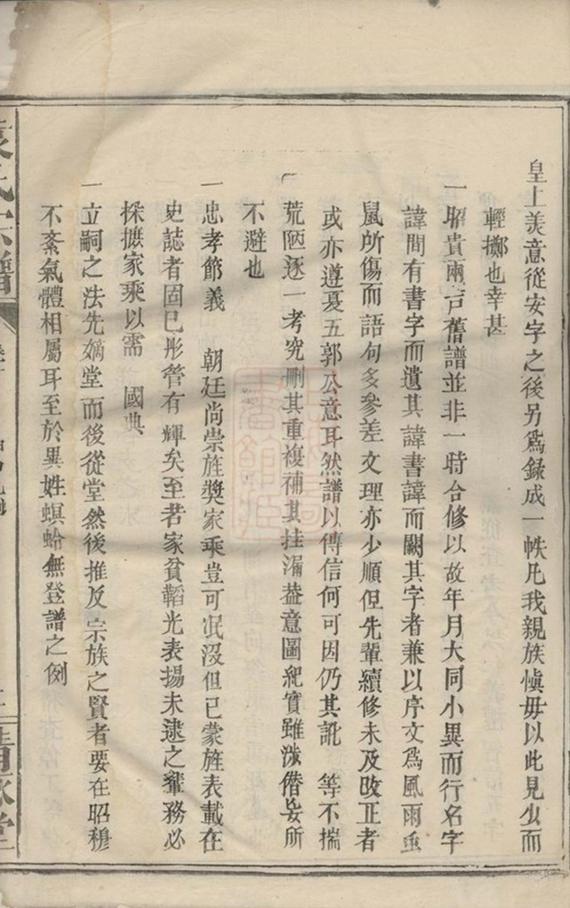 皇上羙意從安字之後另爲錄成一帙凡我親族愼毋以此見少而
輕擲也幸甚
一昭貴兩戸舊譜並非一時合修以故年月大同小異而行名字
諱間有書字而遺其諱書諱而闕其字者兼以序文爲風雨虫
鼠所傷而語句多參差文理亦少順但先輩續修未及改正者
或亦遵夏五郭公意耳然譜以傳信何可因仍其訛 等不揣
荒陋逐一考究刪其重複補其挂漏葢意圖紀實雖涉僭妄所
不避也
一忠孝節義 朝廷尚崇旌奬家乘豈可泯沒但已蒙旌表載在
史誌者固已彤管有輝矣至若家貧韜光表揚未逮之輩務必
採摭家乘以需 國典
一立嗣之法先嫡堂而後從堂然後推及宗族之賢者要在昭穆
不紊氣體相屬耳至於異姓螟蛉無登譜之例
袁氏宗譜